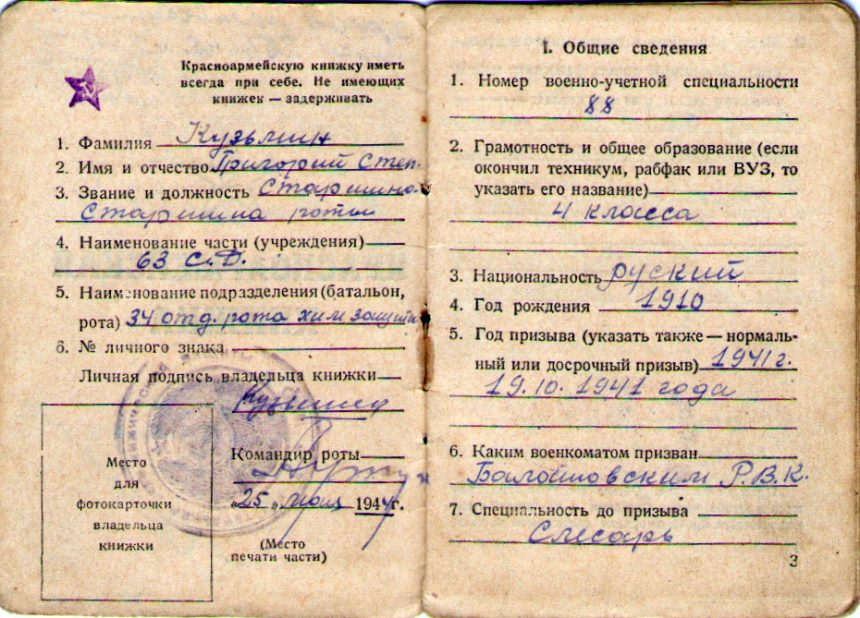 Красноармейскую книжку иметь
всегда при себе. Не имеющих
книжек — задерживать
1. Фамилия Кузьмин
2. Имя и отчество Григорий Степ.
3. Звание и должность Старшина
Старшина роты
4. Наименование части (учреждения)
63 С.Д.
5. Наименование подразделения (батальон,
рота) 34 отд. рота хим защиты
6. № личного знака
Личная подпись владельца книжки
Командир роты
„25" 1944г.
(Место
печати части)
Место
для
фотокарточки
владельца
книжки
I. Общие сведения
1. Номер военно-учетной специальности
88
2. Грамотность и общее образование (если
окончил техникум, рабфак или ВУЗ, то
указать его название)
4 класса
3. Национальность руский
4. Год рождения 1910
5. Год призыва (указать также — нормаль-
ный или досрочный призыв) 1941 г.
19.10.1941 года
6. Каким военкоматом призван
Балашовским Р.В.К.
7. Специальность до призыва
Слесарь
3